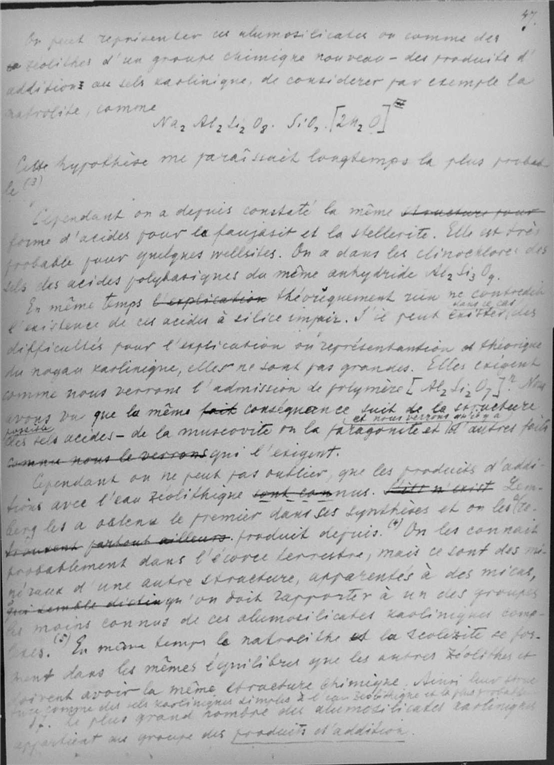 37.
On peut représenter ces alumosilicates ou comme des
zéolithes d'un groupe chimique nouveau – des produits d'
additions aux sels kaolinique, de considérer par exemple la
natrolite, comme
Na2 Al2 Si2 O8. SiO2 [2H2O]
Cette hypothèse me paraîssait longtemps la plus probab
le (3)
Cependant on a depuis constaté la même structure pour
forme d'acides pour le faujasit et la stellerite. Elle est très
probable pour quelques wellsites. On a dans les clinochlores des
sels des acides polybasiques du même anhydride Al2 Si3 O9.
En même temps l'explication théoriquement rien ne contredit
dans ce cas
l'existence de ces acides à silice impair. S'il peut exister, des
difficultés pour l'explication ou représentantion et théorique
du noyau kaolinique, elles ne sont pas grandes. Elles exigent
comme nous verrons l'admission de polymère [Al2 Si2 O7]n. Nous
avons vu que la même fait conséquence suit de la structure
et nous verrons
des sels acides – de la muscovite ou la paragonite et d'autres faits
comme nous le verrons qui l'exigent.
Cependant on ne peut pas oublier, que les produits d'addi-
tions avec l'eau zéolithique sont connus. n'exist Lem-
berg les a obtenu le premier dans ses synthèses et on les a re-
trouvent partout ailleurs produit depuis. (4) On les connait
probablement dans l'écorce terrestre, mais ce sont des mi
néraux d'une autre structure, apparentés à des micas,
qui semble qu'on doit rapporter à un des groupes
les moins connus de ces alumosilicates kaoliniques comp-
lexes. (5) En même temps le natrolithe et la scolezite se for-
ment dans les mêmes équilibres que les autres zéolithes et
doivent avoir la même structure chimique. Ainsi leur struc
ture comme des sels kaoliniques simples à l'eau zéolithique est le plus probable.
17. Le plus grand nombre des alumosilicates kaoliniques
appartient au groupe des produits d'addition.